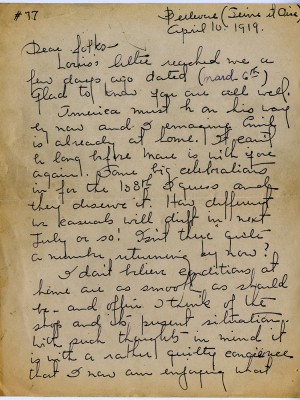 #77
Bellevue (Seine et Oise)
April 10th 1919.
Dear folks -
Lorno's letter reached me a
few days ago dated (March 6th)
Glad to know you are all well.
America must be on his way
by now and I imagine
is already at home. It can't
be long before Mame is with you
again. Some big celebrations
in for the 108th I guess and
they deserve it. How different
us casuals will drift in next
July or so! Isn't there quite
a number returning by now?
I don't believe conditions at
home are as smooth as should
be - and often I think of the
shop and its present situation.
With such thoughts in mind it
is with a rather guilty conscience
that I now am enjoying what